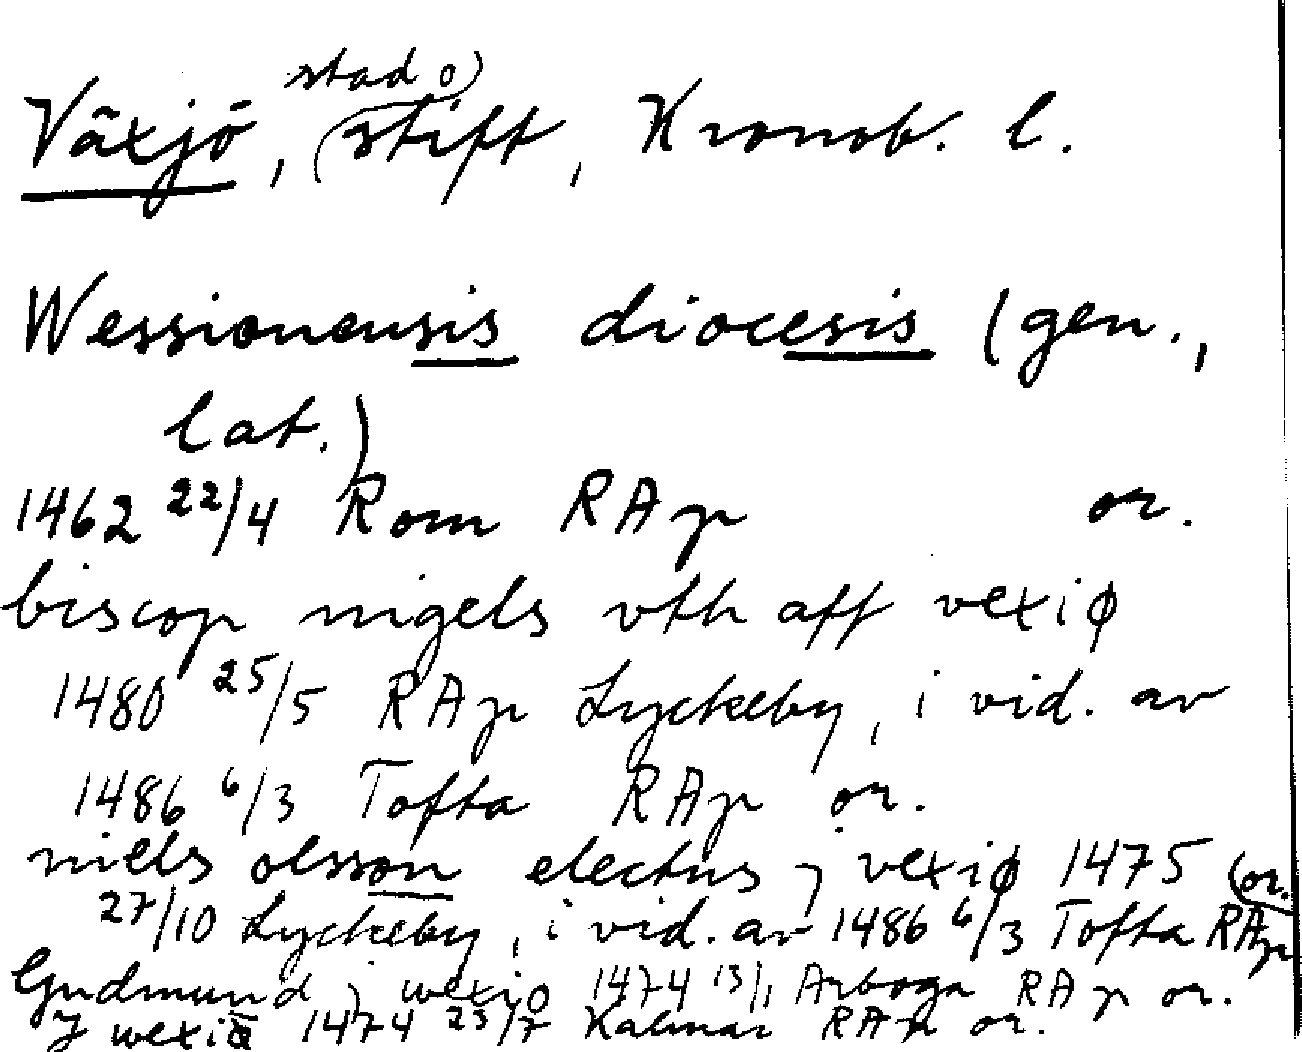 stad o)
Växjö, (stift, Kronob. l.
Wessionensis diocesis (gen.,
lat.)
1462 22/4 Rom RAp or.
biscop nigels vth aff vexiø
1480 25/5 RAp Lyckeby, i vid. av
1486 6/3 Tofta RAp or.
niels olsson electus j vexiø 1475 (or.
27/10 Lyckeby, i vid. av 1486 6/3 Tofta RAp
Gudmund j wexio 1474 13/1 Arboga RAp or.
J wexiø 1474 23/7 Kalmar RAp or.